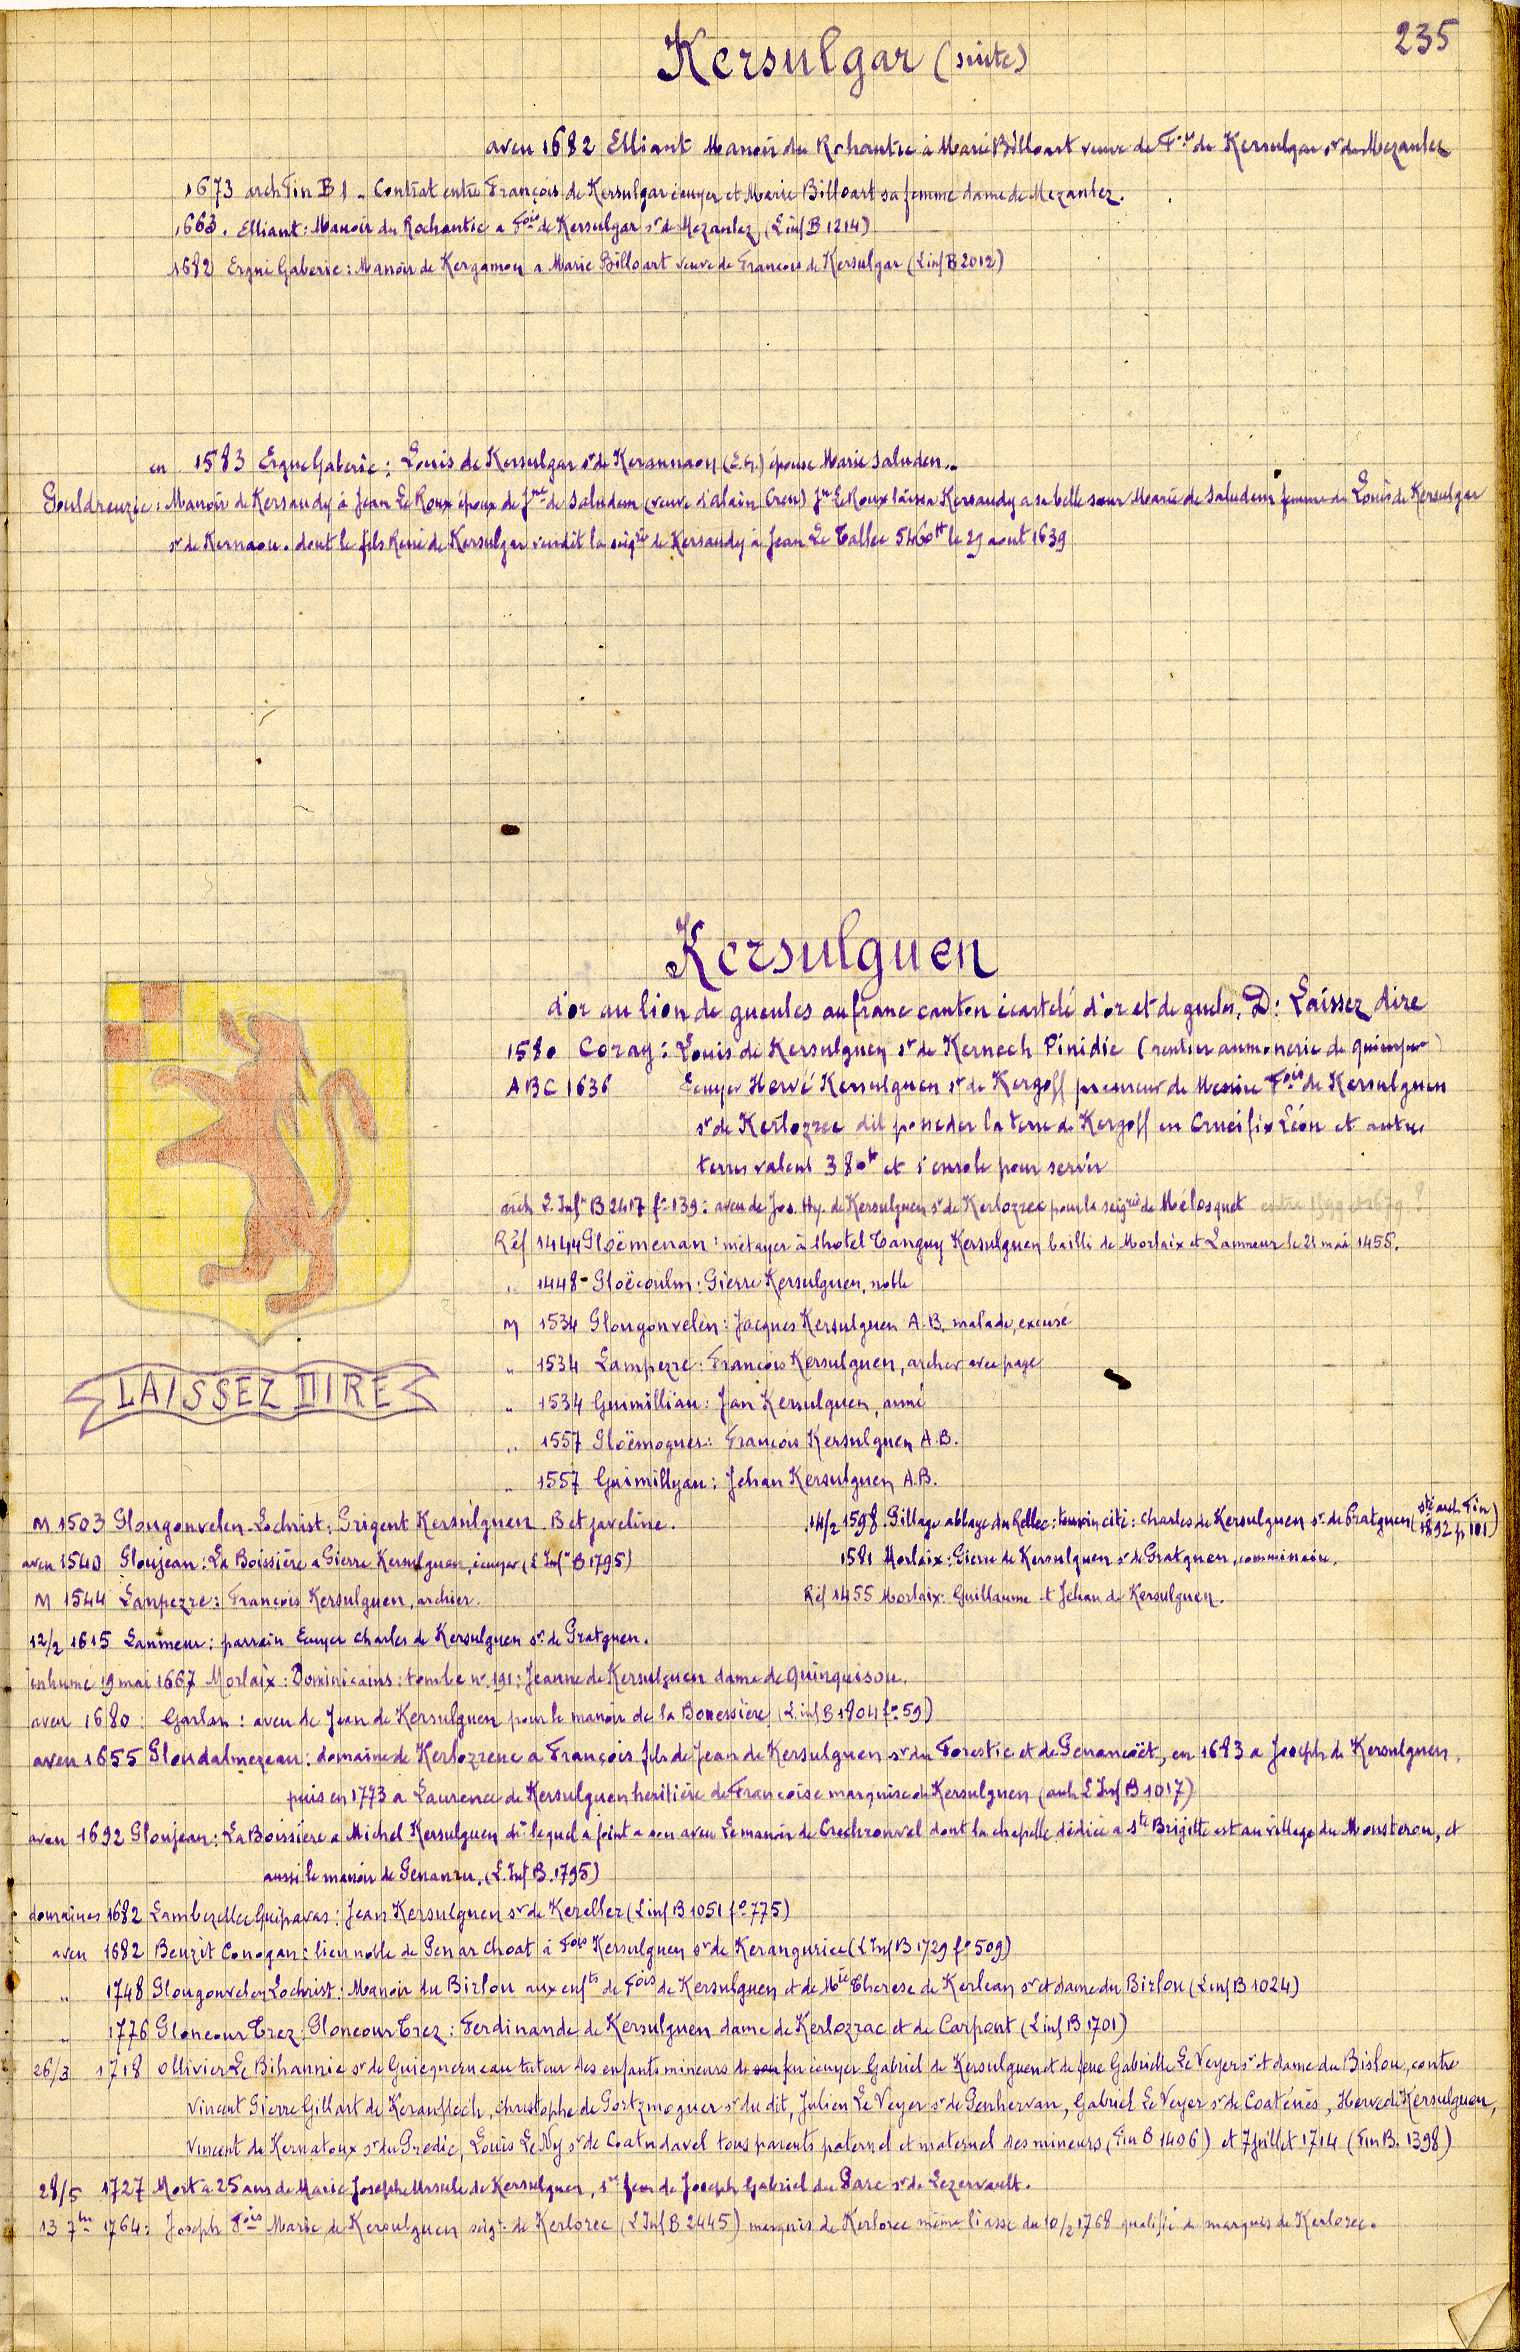 235
Kersulgar (suite)
aveu 1682 Elliant Manoir du Rohantic à Marie Billoart veuve de F.ois de Kersulgar sr de Mezanlez
1673 arch Fin B 1 . Contrat entre François de Kersulgar écuyer et Marie Billoart sa femme dame de Mezanlez.
1663. Elliant : Manoir du Rochantic a Fois de Kersulgar sr de Mezanlez (L inf B 1214)
1682 Ergué Gaberic : Manoir de Kergamon a Marie Billoart veuve de François de Kersulgar (L inf B 2012)
en 1583 Ergue Gaberic : Louis de Kersulgar sr de Kerannaon (E. G.) épouse Marie Saluden..
Gouldreuzic : Manoir de Kersaudy à Jean Le Roux époux de Jne de Saludem (veuve d'Alain Cren) Jn Le Roux laissa Kersaudy a sa belle sœur Marie de Saludem femme de Louis de Kersulgar
sr de Kernaou. dont le fils René de Kersulgar vendit la seigrie de Kersaudy à Jean Le Tallec 5460tt le 29 aout 1639
Kersulguen
d'or au lion de gueules au franc canton écartelé d'or et de gueles. D: Laissez dire
1580 Coray : Louis de Kersulguen sr de Kernech Pinidic (rentier aumonerie de Quimper)
ABC 1636 Ecuyer Hervé Kersulguen sr de Kergoff procureur de Messire Fois de Kersulguen
sr de Kerlozrec dit posseder la terre de Kergoff en Crucifix Léon et autres
terres valent 380tt et s'enrole pour servir
arch L. Infre B 2417 fo 139 : aveu de Jos. Hy. de Kersulguen sr de Kerlozrec pour la seigrie de Mélosquet entre 1599 et 1679 ?
Réf 1444 Ploëmenan : métayer à l'hotel Tanguy Kersulguen bailli de Morlaix et Lanmeur le 21 mai 1455.
" 1448 - Ploëcoulm : Pierre Kersulguen, noble
M 1534 Plougonvelen : Jacques Kersulguen A. B. malade, excusé
" 1534 Lamperre : François Kersulguen, archer avec page
" 1534 Guimilliau : Jan Kersulguen, armé
" 1557 Ploëmoguer : François Kersulguen A. B.
" 1557 Guimillyau : Jehan Kersulguen A.B.
LAISSEZ DIRE
M 1503 Plougonvelen-Lochrist : Prigent Kersulguen B et javeline.
14/2 1598 Pillage abbaye du Rellec : temoin cité : Charles de Kersulguen sr de Pratguen (Sté arch Fin 1892 p 101)
aveu 1540 Ploujean : La Boissière a Pierre Kersulguen, écuyer (L. Infre B 1795)
1581 Morlaix : Pierre de Kersulguen sr de Pratguen, commissaire.
M 1544 Lanpezre : François Kersulguen, archier.
Réf 1455 Morlaix : Guillaume et Jehan de Kersulguen.
12/2 1615 Lanmeur : parrain Ecuyer Charles de Kersulguen sr de Pratguen.
inhumé 19 mai 1667 Morlaix : Dominicains : tombe no 191 : Jeanne de Kersulguen dame de Quinquisou.
aveu 1680 : Garlan : aveu de Jean de Kersulguen pour le manoir de la Bouessière (L. inf B 1804 fo 59)
aveu 1655 Ploudalmezeau : domaine de Kerlozrenc a François fils de Jean de Kersulguen sr du Forestic et de Penancoët, en 1683 a Joseph de Kersulguen,
puis en 1773 a Laurence de Kersulguen heritière de Françoise marquise de Kersulguen (arch L Inf B 1017)
aveu 1692 Ploujean : La Boissiere a Michel Kersulguen dr lequel a joint a son aveu Le manoir de Crechronvel dont la chapelle dédiée a Ste Brigitte est au village du Mousterou, et
aussi le manoir de Penanru. (L. Inf B. 1795)
domaines 1682 Lambezellec Guipavas : Jean Kersulguen sr de Kereller (L inf B 1051 fo 775)
aveu 1682 Beuzit Conogan : lieu noble de Pen ar Choat à Fois Kersulguen sr de Keranguriec (L Inf B 1729 fo 509)
" 1748 Plougonvelen Lochrist : Manoir du Birlou aux enfts de Fois de Kersulguen et de Mie Therese de Kerlean sr et dame du Birlou (L inf B 1024)
" 1776 Ploneour Trez Ploneour Trez : Ferdinande de Kersulguen dame de Kerlozrac et de Carpont (L inf B 1701)
26/3 1718 Ollivier Le Bihannic sr de Guiequerneau tuteur des enfants mineurs de feu écuyer Gabriel de Kersulguen et de feue Gabrielle Le Veyer sr et dame du Bislou, contre
Vincent Pierre Gillart de Keranflech, Christophe de Portzmoguer sr du dit, Julien Le Veyer sr de Penhervan, Gabriel Le Veyer sr de Coaténès, Herve de Kersulguen,
Vincent de Kernatoux sr du Predic, Louis Le Ny sr de Coatudavel tous parents paternel et maternel des mineurs (Fin B 1406) et 7 juillet 1714 (Fin B. 1398)
28/5 1727 Mort a 25 ans de Marie Josephe Ursule de Kersulguen, 1re fem de Joseph Gabriel du Parc sr de Lezervault.
13 7bre 1764 : Joseph Fois Marie de Kersulguen seigr de Kerlorec (L Inf B 2445) marquis de Kerlorec même liasse du 10/2 1768 qualifié de marquis de Kerlorec.